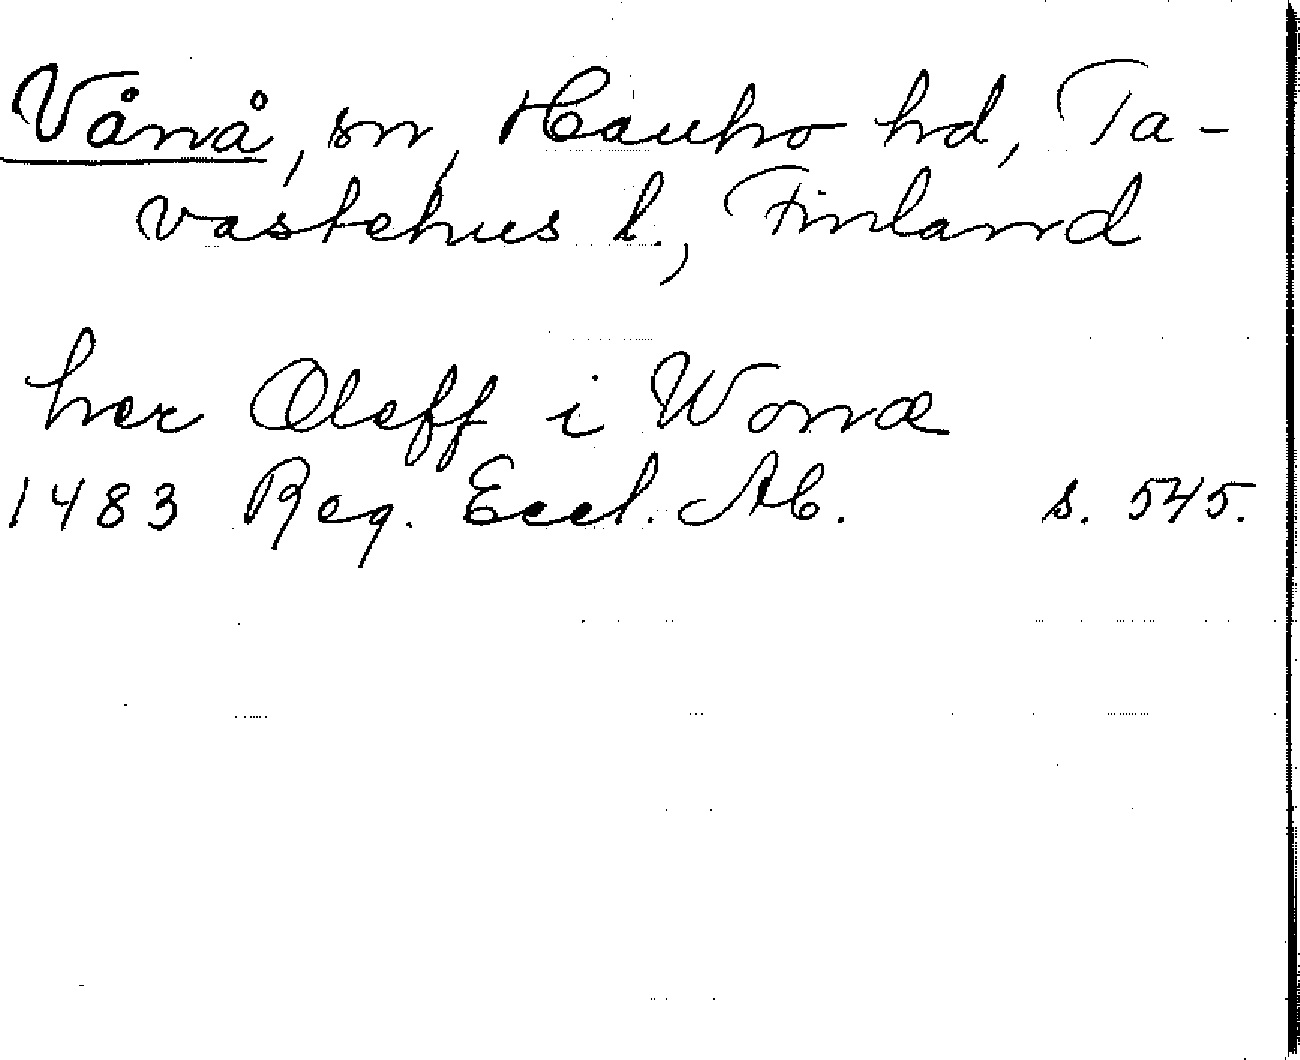 Vånå, sn, Hauho hd, Ta-
vastehus l., Finland
her Oleff i Wonæ
1483 Reg. Eccl. Ab. s. 545.